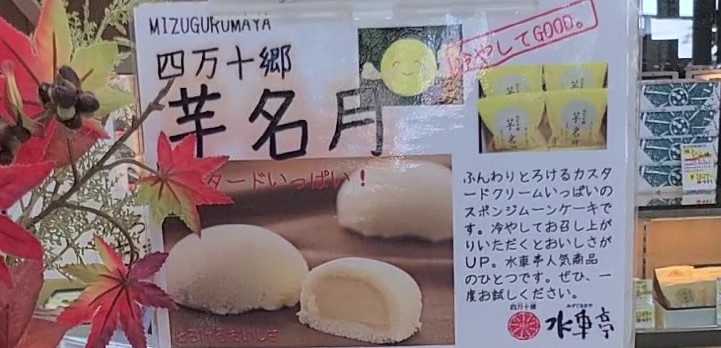 MIZUGURUMAYA
四万十郷
芋名月
冷やしてGOOD。
タードいっぱい！
とろけるおいしさ
ふんわりとろけるカスタ
ードクリームいっぱいの
スポンジムーンケーキで
す。冷やしてお召し上が
りいただくとおいしさが
UP。水車亭人気商品
のひとつです。ぜひ、一
度お試しください。
四万十郷
みずぐるまや
水車亭